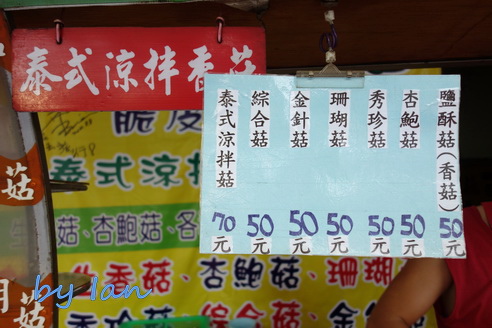 泰式涼拌香菇
鹽酥菇(香菇) 50元
杏鮑菇 50元
秀珍菇 50元
珊瑚菇 50元
金針菇 50元
綜合菇 50元
泰式涼拌菇 70元
脆皮
泰式涼拌
菇、杏鮑菇、各
香菇、杏鮑菇、珊瑚
杏秀珍菇、綜合菇、金
菇
菇
by Ian